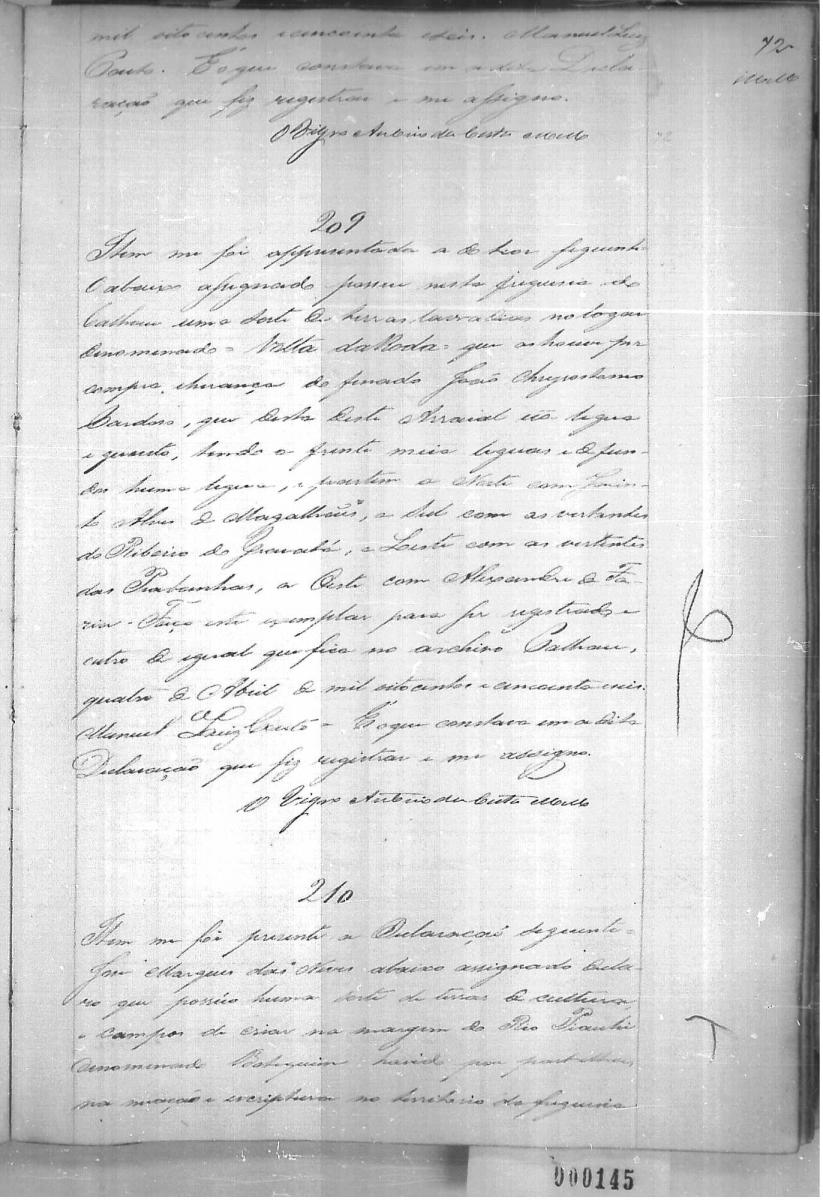 mil oito centos e cincoenta e seis. Manuel Luiz
Couto. É o que constava em a dita Decla-
ração que fiz registrar e me assigno.
O Vigro Antonio da Costa Mello
72
Mello
209
Item me foi appresentada a do teor seguinte
O abaixo assignado possue nesta freguesia do
Calhau uma sorte de terras lavradias no logar
denominado = Volta da Roda = que as houve por
compra, e herança do finado João Chrysostomo
Cardoso, que dista deste Arraial
e quarto, tendo a frente meia legua e de fun-
dos huma legua, e partem a Norte com Jacin-
to Alves de Magalhães, a Sul com as vertentes
do Ribeiro do Gravatá, a Leste com as vertentes
das Piabanhas, a Oeste com Alexandre de Fa-
ria - Faço este exemplar para ser registrado e
outro de egual que fica no archivo Calhau,
quatro de Abril de mil oito centos e cincoenta e seis.
Manuel Luiz Couto = É o que constava em a dita
Declaração que fiz registrar e me assigno.
O Vigro Antonio da Costa Mello
210
Item me foi presente a Declaração seguinte =
José Marques das Neves abaixo assignado decla-
ro que possúo huma sorte de terras de cultura
e campos de criar na margem do Rio Piauhi
denominado havido por partilhas
na e escriptura no territorio da freguesia
000145